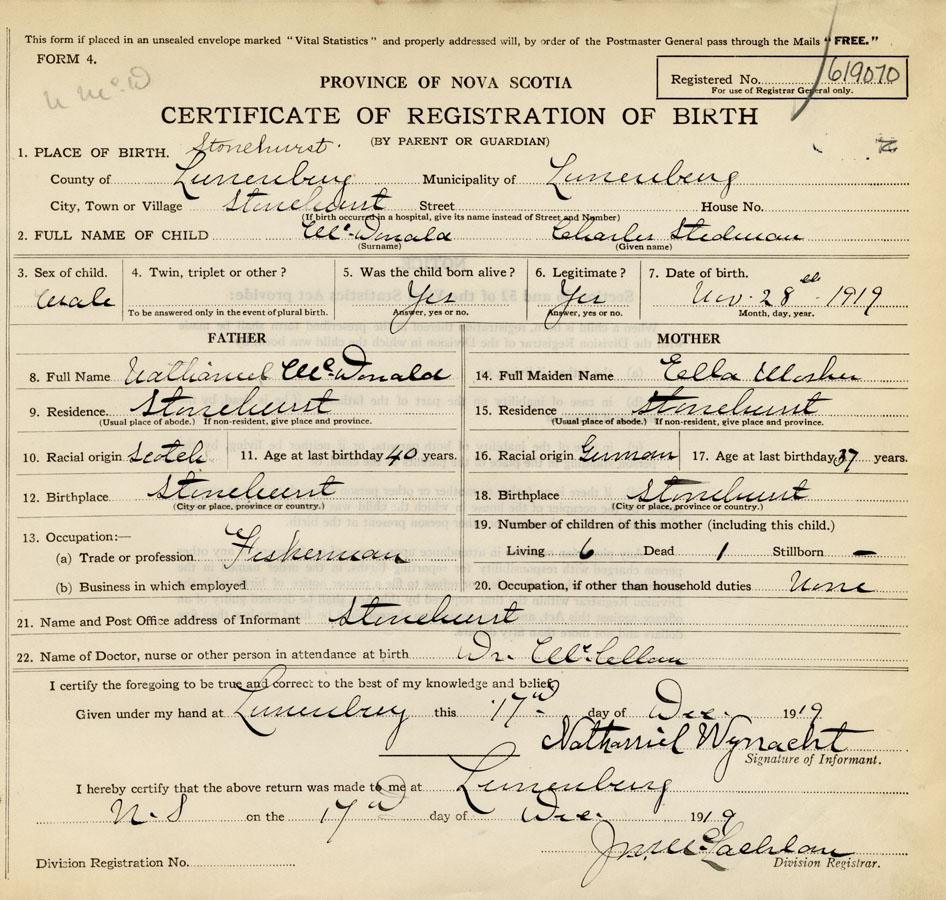 This form if placed in an unsealed envelope marked "Vital Statistics" and properly addressed will, by order of the Postmaster General pass through the Mails "FREE."
FORM 4.
N McD
PROVINCE OF NOVA SCOTIA
Registered No. 619070
For use of Registrar General only.
CERTIFICATE OF REGISTRATION OF BIRTH
(BY PARENT OR GUARDIAN)
1. PLACE OF BIRTH. Stonehurst.
County of Lunenburg Municipality of Lunenburg
City, Town or Village Stonehurst Street House No.
(If birth occurred in a hospital, give its name instead of Street and Number)
2. FULL NAME OF CHILD McDonald Charles Stedman
(Surname) (Given name)
3. Sex of child. 4. Twin, triplet or other? 5. Was the child born alive? 6. Legitimate? 7. Date of birth.
Male Yes Yes Nov. 28th 1919
To be answered only in the event of plural birth. Answer, yes or no. Answer, yes or no. Month, day, year.
FATHER MOTHER
8. Full Name Nathaniel McDonald 14. Full Maiden Name Ella Mosher
9. Residence. Stonehurst 15. Residence Stonehurst
(Usual place of abode.) If non-resident, give place and province. (Usual place of abode.) If non-resident, give place and province.
10. Racial origin Scotch 11. Age at last birthday 40 years. 16. Racial origin German 17. Age at last birthday 37 years.
12. Birthplace Stonehurst 18. Birthplace Stonehurst
(City or place, province or country.) (City or place, province or country.)
13. Occupation:— 19. Number of children of this mother (including this child.)
(a) Trade or profession Fisherman Living 6 Dead 1 Stillborn —
(b) Business in which employed 20. Occupation, if other than household duties None
21. Name and Post Office address of Informant Stonehurst
22. Name of Doctor, nurse or other person in attendance at birth Dr. McLellan
I certify the foregoing to be true and correct to the best of my knowledge and belief.
Given under my hand at Lunenburg this 17th day of Dec. 1919
Nathaniel Wynacht
Signature of Informant.
I hereby certify that the above return was made to me at Lunenburg
N.S on the 17th day of Dec. 1919
Jas McLachlan
Division Registration No. Division Registrar.